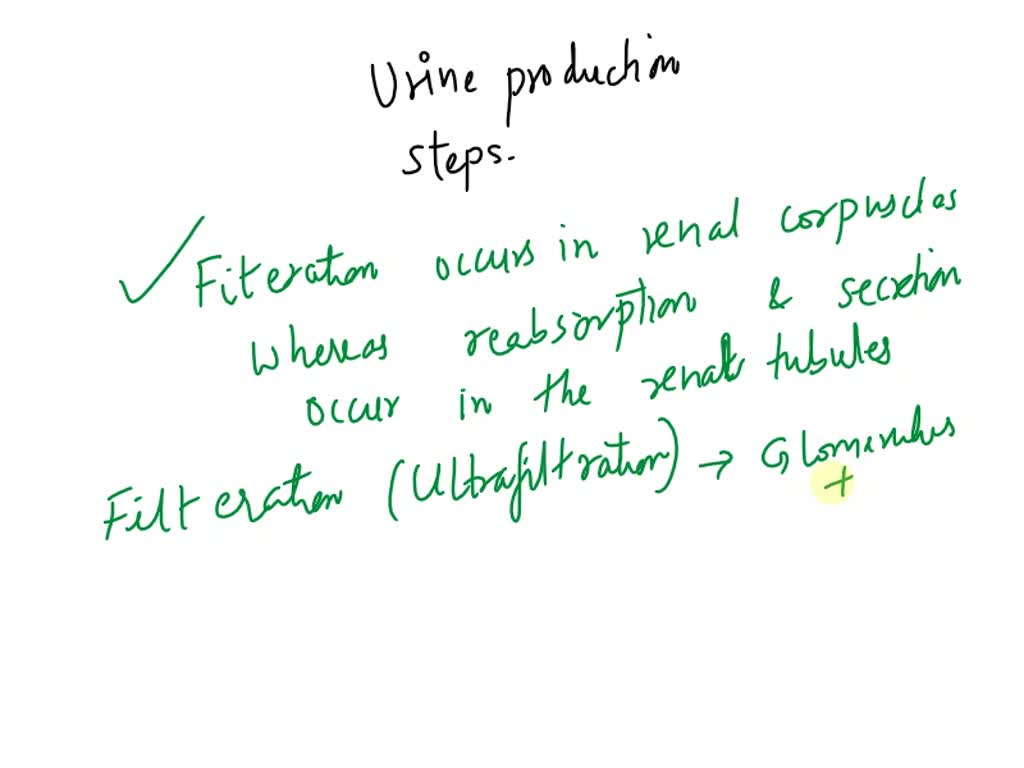 Urine production
steps.
✓ Fiteration occurs in renal corpuscles
whereas reabsorption & secretion
occur in the renal tubules
Filteration (Ultrafiltration) → Glomerulus
+